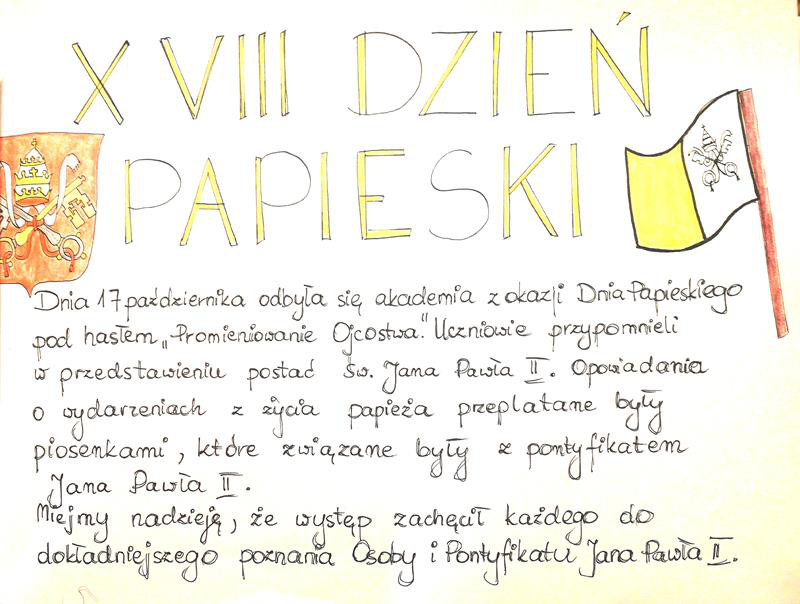 XVIII DZIEŃ
PAPIESKI
Dnia 17 października odbyła się akademia z okazji Dnia Papieskiego
pod hasłem „Promieniowanie Ojcostwa." Uczniowie przypomnieli
w przedstawieniu postać św. Jana Pawła II. Opowiadania
o wydarzeniach z życia papieża przeplatane były
piosenkami, które związane były z pontyfikatem
Jana Pawła II.
Miejmy nadzieję, że występ zachęcił każdego do
dokładniejszego poznania Osoby i Pontyfikatu Jana Pawła II.